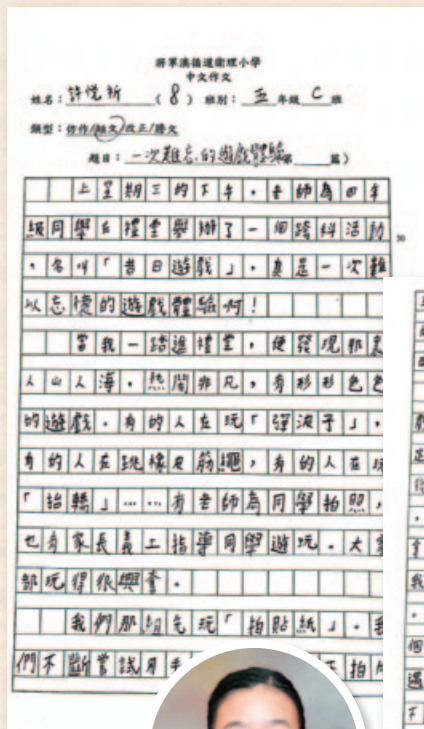 將軍澳循道衛理小學
中文作文
姓名：許悅祈（8）班別：五年級C班
類型：仿作/短文/改正/謄文
題目：一次難忘的遊戲體驗 第 篇）
上星期三的下午，老師為四年
級同學在禮堂舉辦了一個跨科活動
，名叫「昔日遊戲」，真是一次難
以忘懷的遊戲體驗啊！
當我一踏進禮堂，便發現那裏
人山人海，熱鬧非凡，有形形色色
的遊戲。有的人在玩「彈波子」，
有的人在跳橡皮筋繩，有的人在玩
「抬轎」……有老師為同學拍照，
也有家長義工指導同學遊玩。大家
都玩得很興奮。
我們那組先玩「拍貼紙」。我
們不斷嘗試用手 拍
50